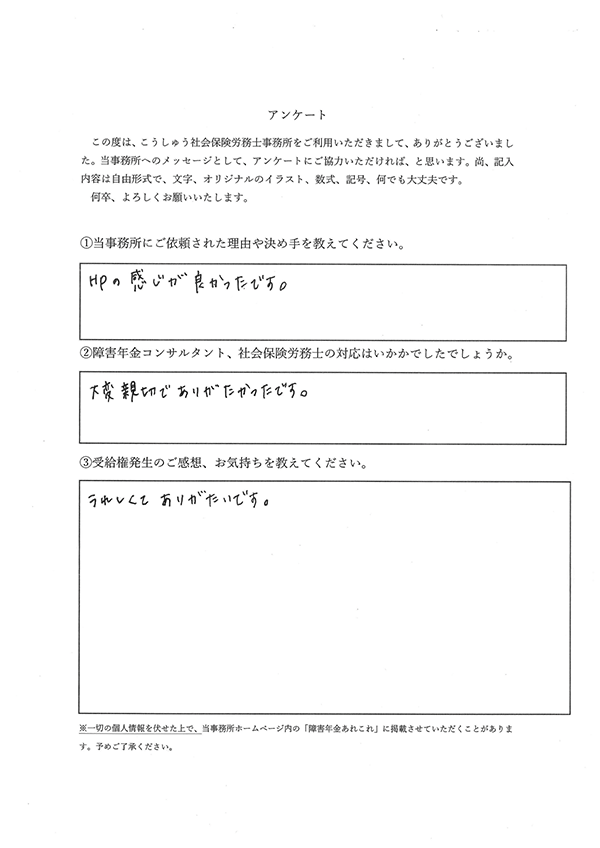 アンケート
この度は、こうしゅう社会保険労務士事務所をご利用いただきまして、ありがとうございまし
た。当事務所へのメッセージとして、アンケートにご協力いただければ、と思います。尚、記入
内容は自由形式で、文字、オリジナルのイラスト、数式、記号、何でも大丈夫です。
何卒、よろしくお願いいたします。
①当事務所にご依頼された理由や決め手を教えてください。
HPの感じが良かったです。
②障害年金コンサルタント、社会保険労務士の対応はいかかでしたでしょうか。
大変親切でありがたかったです。
③受給権発生のご感想、お気持ちを教えてください。
うれしくてありがたいです。
※一切の個人情報を伏せた上で、当事務所ホームページ内の「障害年金あれこれ」に掲載させていただくことがありま
す。予めご了承ください。